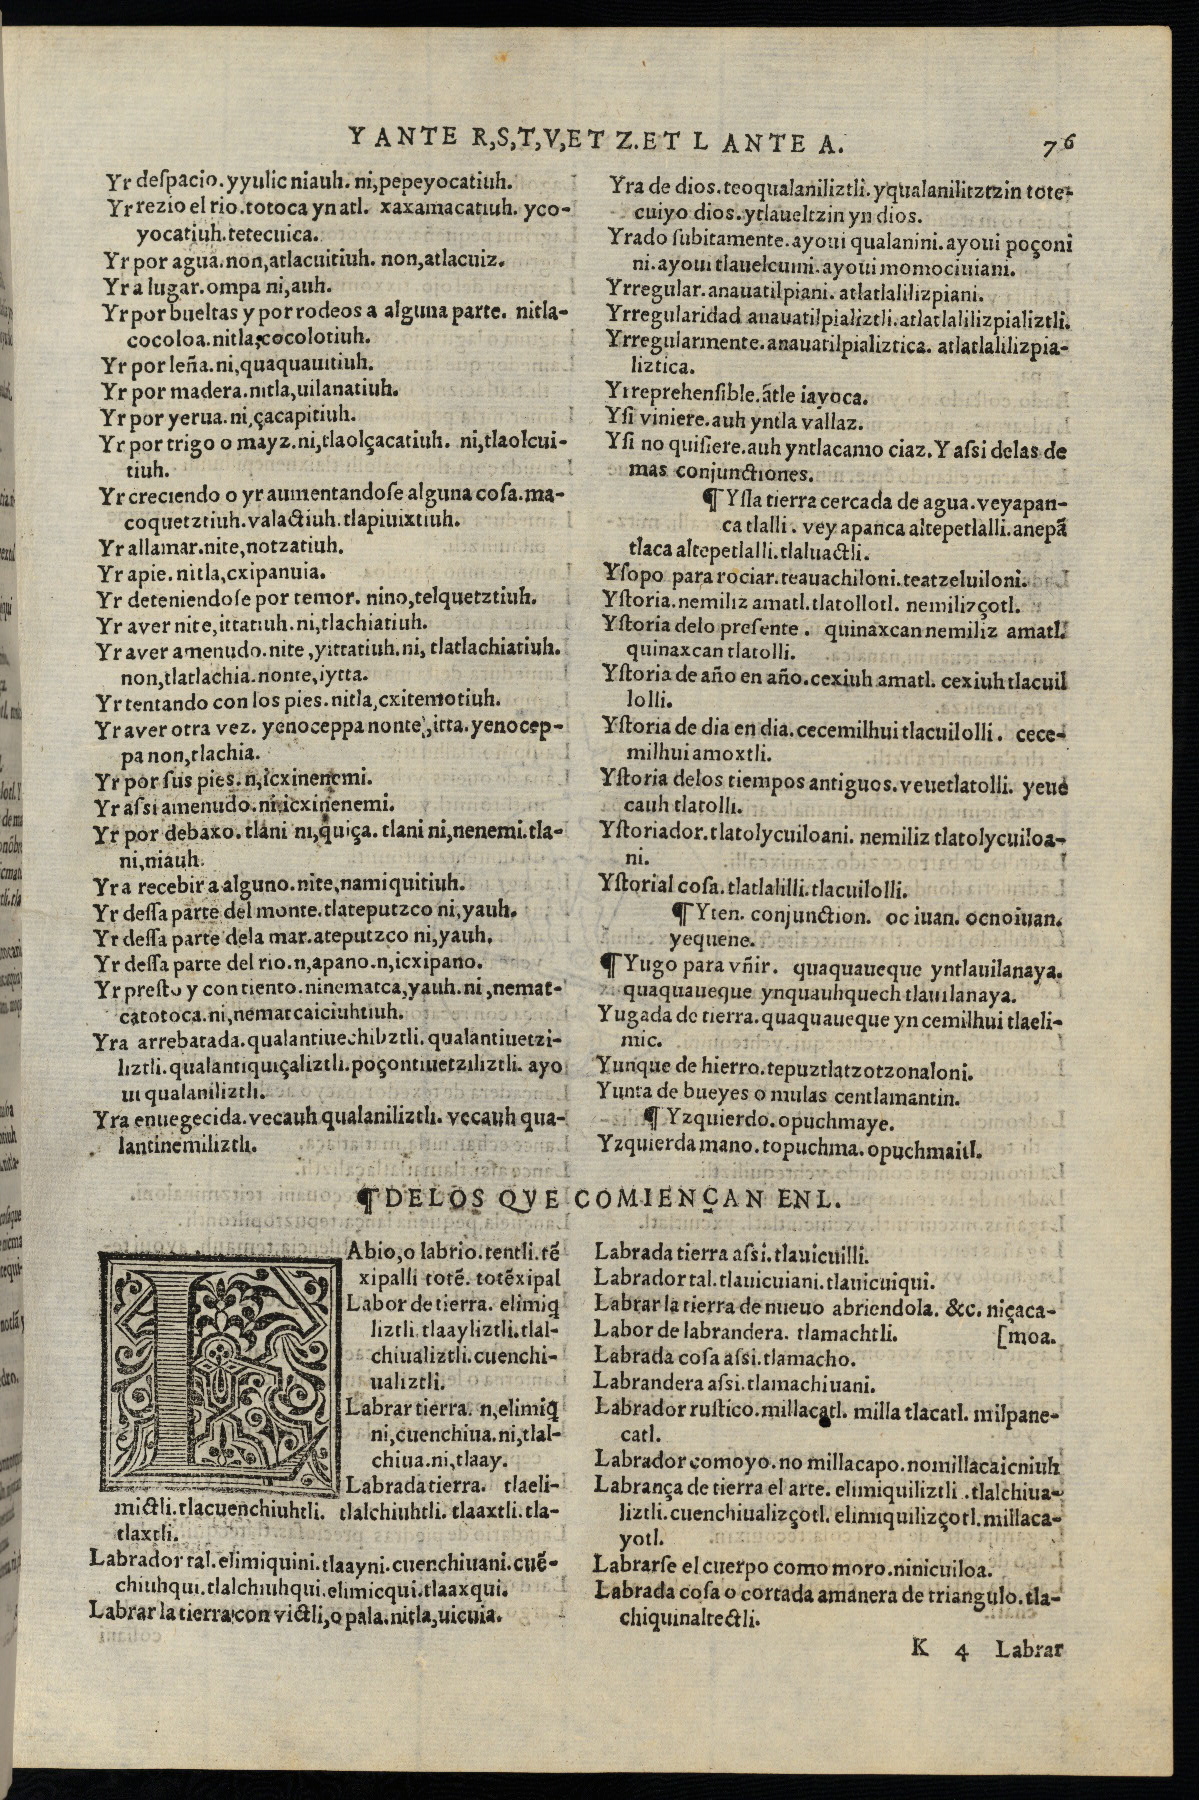 Y ANTE R,S,T,V,ET Z.ET L ANTE A.
76
Yr despacio. yyulic niauh. ni,pepeyocatiuh.
Yr rezio el rio. totoca yn atl. xaxamacatiuh. yco-
yocatiuh. tetecuica.
Yr por agua. non,atlacuitiuh. non,atlacuiz.
Yr a lugar. ompa ni,auh.
Yr por bueltas y por rodeos a alguna parte. nitla-
cocoloa. nitla,cocolotiuh.
Yr por leña. ni,quaquauitiuh.
Yr por madera. nitla,uilanatiuh.
Yr por yerua. ni,çacapitiuh.
Yr por trigo o mayz. ni,tlaolçacatiuh. ni,tlaolcui-
tiuh.
Yr creciendo o yr aumentandose alguna cosa. ma-
coquetztiuh. valactiuh. tlapiuixtiuh.
Yr allamar. nite,notzatiuh.
Yr apie. nitla,cxipanuia.
Yr deteniendose por temor. nino,telquetztiuh.
Yr aver nite,ittatiuh. ni,tlachiatiuh.
Yr aver amenudo. nite,yittatiuh. ni, tlatlachiatiuh.
non,tlatlachia. nonte,iytta.
Yr tentando con los pies. nitla,cxitemotiuh.
Yr aver otra vez. yenoceppa nonte,itta. yenocep-
pa non,tlachia.
Yr por sus pies. n,icxinenemi.
Yr assi amenudo. ni,icxinenemi.
Yr por debaxo. tlani ni,quiça. tlani ni,nenemi. tla-
ni,niauh.
Yr a recebir a alguno. nite,namiquitiuh.
Yr dessa parte del monte. tlateputzco ni,yauh.
Yr dessa parte dela mar. ateputzco ni,yauh.
Yr dessa parte del rio. n,apano. n,icxipano.
Yr presto y con tiento. ninematca,yauh. ni,nemat-
catotoca. ni,nematcaiciuhtiuh.
Yra arrebatada. qualantiuechiliztli. qualantiuetzi-
liztli. qualantiquiçaliztli. poçontiuetziliztli. ayo
ui qualaniliztli.
Yra enuegecida. vecauh qualaniliztli. vecauh qua-
lantinemiliztli.
Yra de dios. teoqualaniliztli. yqualanilitztzin tote-
cuiyo dios. ytlaueltzin yn dios.
Yrado subitamente. ayoui qualanini. ayoui poçoni
ni. ayoui tlauelcuini. ayoui momociuiani.
Yrregular. anauatilpiani. atlatlalilizpiani.
Yrregularidad anauatilpializtli. atlatlalilizpializtli.
Yrregularmente. anauatilpializtica. atlatlalilizpia-
liztica.
Yrreprehensible. ãtle iayoca.
Ysi viniere. auh yntla vallaz.
Ysi no quisiere. auh yntlacamo ciaz. Y assi delas de
mas conjunctiones.
¶ Ysla tierra cercada de agua. veyapan-
ca tlalli. vey apanca altepetlalli. anepã
tlaca altepetlalli. tlaluactli.
Ysopo para rociar. teauachiloni. teatzeluiloni.
Ystoria. nemiliz amatl. tlatollotl. nemilizçotl.
Ystoria delo presente. quinaxcan nemiliz amatl.
quinaxcan tlatolli.
Ystoria de año en año. cexiuh amatl. cexiuh tlacuil
lolli.
Ystoria de dia en dia. cecemilhui tlacuilolli. cece-
milhui amoxtli.
Ystoria delos tiempos antiguos. veuetlatolli. yeue
cauh tlatolli.
Ystoriador. tlatolycuiloani. nemiliz tlatolycuiloa-
ni.
Ystorial cosa. tlatlalilli. tlacuilolli.
¶ Yten. conjunction. oc iuan. ocnoiuan.
yequene.
¶ Yugo para vñir. quaquaueque yntlauilanaya.
quaquaueque ynquauhquech tlauilanaya.
Yugada de tierra. quaquaueque yn cemilhui tlaeli-
mic.
Yunque de hierro. tepuztlatzotzonaloni.
Yunta de bueyes o mulas centlamantin.
¶ Yzquierdo. opuchmaye.
Yzquierda mano. topuchma. opuchmaitl.
¶ DELOS QVE COMIENÇAN EN L.
LAbio, o labrio. tentli. tẽ
xipalli totẽ. totẽxipal
Labor de tierra. elimiq
liztli. tlaayliztli. tlal-
chiualiztli. cuenchi-
ualiztli.
Labrar tierra. n,elimiq
ni,cuenchiua. ni,tlal-
chiua. ni,tlaay.
Labrada tierra. tlaeli-
mictli. tlacuenchiuhtli. tlalchiuhtli. tlaaxtli. tla-
tlaxtli.
Labrador tal. elimiquini. tlaayni. cuenchiuani. cuẽ-
chiuhqui. tlalchiuhqui. elimicqui. tlaaxqui.
Labrar la tierra con victli, o pala. nitla,uicuia.
Labrada tierra assi. tlauicuilli.
Labrador tal. tlauicuiani. tlauicuiqui.
Labrar la tierra de nueuo abriendola. &c. niçaca-
Labor de labrandera. tlamachtli. [moa.
Labrada cosa assi. tlamacho.
Labrandera assi. tlamachiuani.
Labrador rustico. millacatl. milla tlacatl. milpane-
catl.
Labrador comoyo. no millacapo. nomillacaicniuh
Labrança de tierra el arte. elimiquiliztli. tlalchiua-
liztli. cuenchiualizçotl. elimiquilizçotl. millaca-
yotl.
Labrarse el cuerpo como moro. ninicuiloa.
Labrada cosa o cortada amanera de triangulo. tla-
chiquinaltectli.
K 4 Labrar